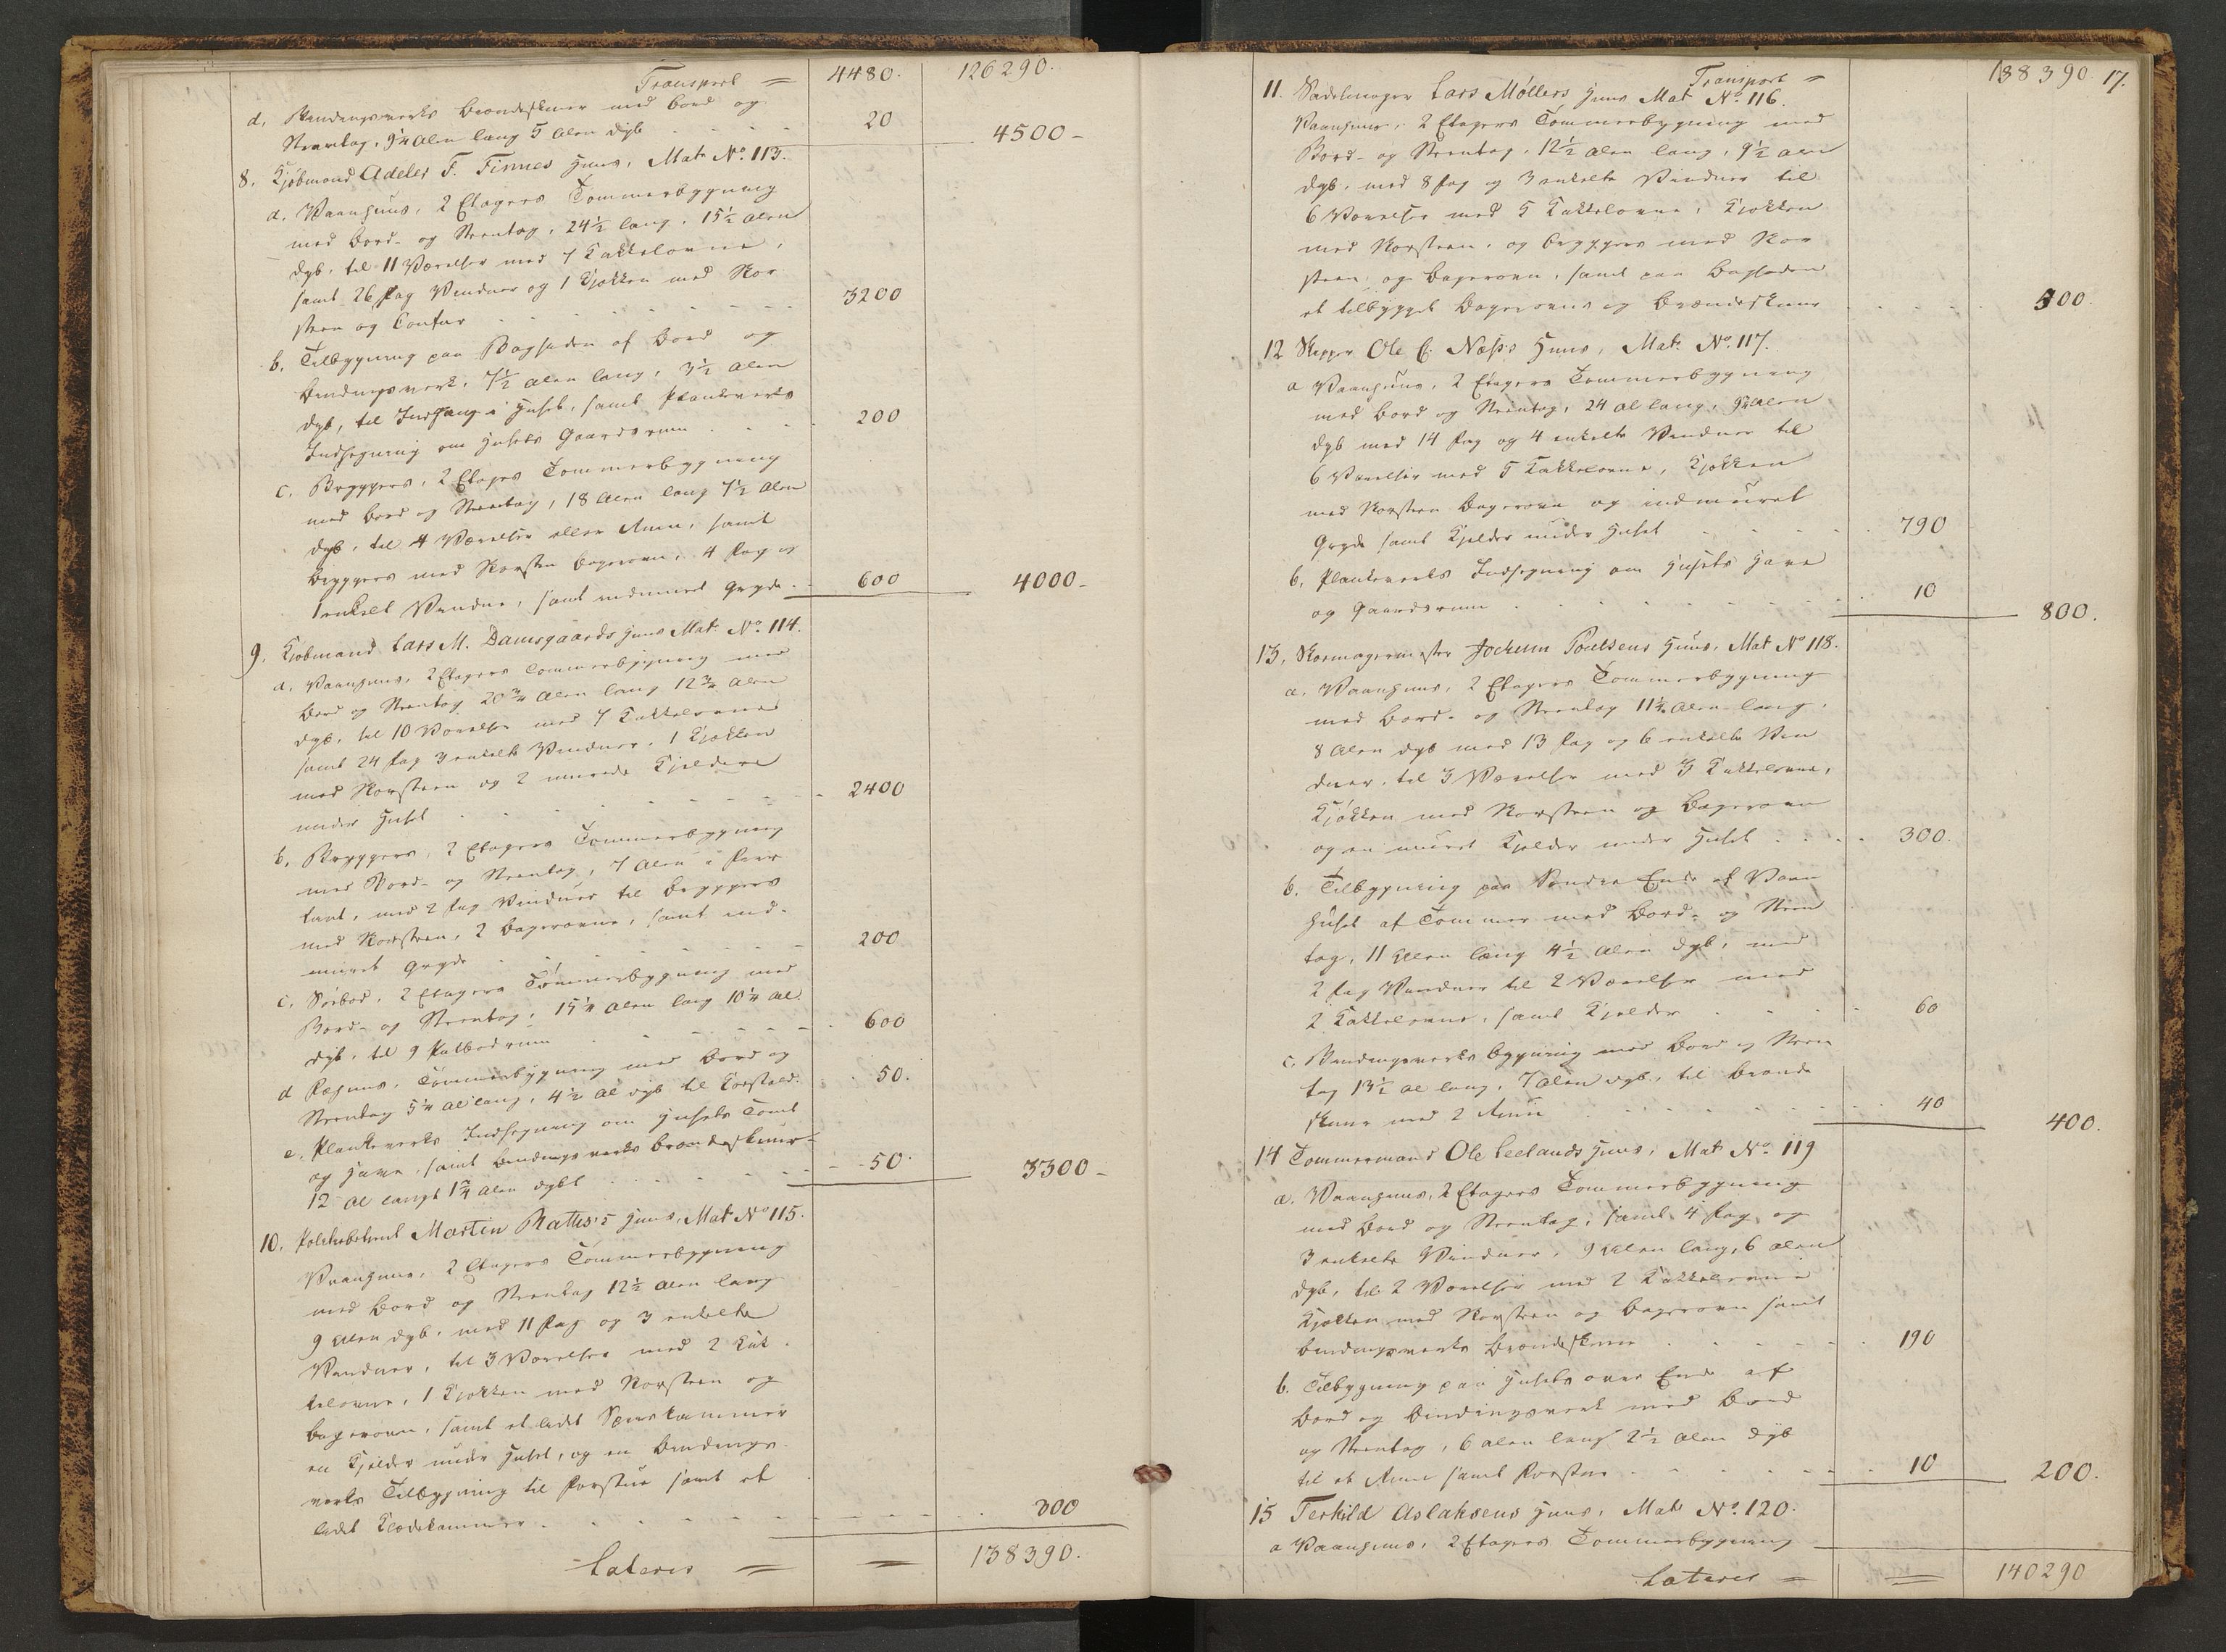 Transport = 4480. 126290.
d. Bindingsverks Brændeskuur med Bord og
Steentag, 9¼ Alen lang 5 Alen dyb 20 4500-
8. Kjøbmand Adeler F. Finnes Huus, Mat. No. 113.
a. Vaanhuus, 2 Etagers Tømmerbygning
med Bord- og Steentag, 24½ lang, 15½ Alen
dyb, til 11 Værelser med 7 Kakkelovne,
samt 26 Fag Vinduer og 1 Kjøkken med Skor
steen og Contur 3200
b. Tilbygning paa Bagsiden af Bord og
Bindingsverk, 7½ Alen lang, 3½ Alen
dyb, til Indgang i Huset, samt Plankeverks
Indhegning om Husets Gaardsrum 200
c. Bryggers, 2 Etages Tømmerbygning
med Bord og Steentag, 18 Alen lang 7½ Alen
dyb, til 4 Værelser eller Rum, samt
Bryggers med Skorsteen Bagerovn, 4 Fag og
1 enkelt Vindue, samt indmuret Gryde 600 4000-
9. Kjøbmand Lars M. Damsgaards Huus Mat. No. 114.
a. Vaanhuus, 2 Etagers Tømmerbygning med
Bord og Steentag 20¾ Alen lang 12¾ Alen
dyb, til 10 Værelser med 7 Kakkelovne
samt 24 Fag 3 enkelte Vinduer, 1 Kjøkken
med Skorsteen og 2 murede Kjeldere
under Huset 2400
b. Bryggers, 2 Etagers Tømmerbygning
med Bord- og Steentag, 7 Alen i Fiir
kant, med 2 Fag Vinduer til Bryggers
med Skorsteen, 2 Bagerovne, samt ind-
muret Gryde 200
c. Søebod, 2 Etagers Tømmerbygning med
Bord- og Steentag, 15¼ Alen lang 10¼ Al.
dyb, til 9 Pakbodrum 600
d Fæhuus, Tømmerbygning med Bord og
Steentag 5¼ Al lang, 4½ Al dyb til Torvstald. 50.
e. Plankeverks Indhegning om Husets Tomt
og Have, samt Bindingsverks Brændeskuur
12 Al langt 1¾ Alen dybt 50. 3300-
10. Politibetjent Martin Rattis's Huus, Mat No 115.
Vaanhuus, 2 Etagers Tømmerbygning
med Bord og Steentag 12½ Alen lang
9 Alen dyb, med 11 Fag og 3 enkelte
Vinduer, til 3 Værelser med 2 Kak-
kelovne, 1 Kjøkken med Skorsteen og
Bagerovn, samt et lidet Spiiskammer
en Kjelder under Huset, og en Bindings-
verks Tilbygning til Forstue samt et
lidet Klædekammer 300
Lateris = = 138390.
Transport = 138390. 17.
11. Sadelmager Lars Møllers Huus Mat No. 116.
Vaanhuus, 2 Etagers Tømmerbygning med
Bord- og Steentag, 12½ Alen lang, 9½ Alen
dyb, med 8 Fag og 3 enkelte Vinduer til
6 Værelser med 5 Kakkelovne, Kjøkken
med Skorsteen, og Bryggers med Skor
steen og Bagerovn, samt paa Bagsiden
et tilbygget Bagerovns og Brændeskuur 500.
12 Skipper Ole C. Næss's Huus, Mat. No. 117.
a Vaanhuus, 2 Etagers Tømmerbygning
med Bord og Steentag, 24 Al lang, 9¾ Alen
dyb med 14 Fag og 4 enkelte Vinduer til
6 Værelser med 5 Kakkelovne, Kjøkken
med Skorsteen Bagerovn og indmuret
Gryde samt Kjelder under Huset 790
b. Plankeverks Indhegning om Husets Have
og Gaardsrum 10 800.
13. Skomagermester Jochum Poulsens Huus, Mat No 118.
a. Vaanhuus, 2 Etagers Tømmerbygning
med Bord- og Steentag 11¼ Alen lang,
8 Alen dyb med 13 Fag og 6 enkelte Vin
duer, til 3 Værelser med 3 Kakkelovne,
Kjøkken med Skorsteen og Bagerovn
og en muret Kjelder under Huset 300.
b. Tilbygning paa Søndre Ende af Vaan
huset af Tømmer med Bord- og Steen
tag, 11 Alen lang 4½ Alen dyb, med
2 Fag Vinduer til 2 Værelser med
2 Kakkelovne, samt Kjelder 60
c. Bindingsverks bygning med Bord og Steen
tag 13½ Al lang, 7 Alen dyb, til Brænde
skuur med 2 Rum 40 400.
14 Tømmermand Ole Leelands Huus, Mat No. 119
a. Vaanhuus, 2 Etagers Tømmerbygning
med Bord og Steentag, samt 4 Fag og
3 enkelte Vinduer, 9 Alen lang, 6 Alen
dyb, til 2 Værelser med 2 Kakkelovne
Kjøkken med Skorsteen og Bagerovn samt
Bindingsverks Brændeskuur 190
b. Tilbygning paa Husets øvre Ende af
Bord og Bindingsverk med Bord
og Steentag, 6 Alen lang 2½ Alen dyb
til et Rum samt Forstue 10 200.
15 Terkild Aslaksens Huus, Mat No. 120.
a Vaanhuus, 2 Etagers Tømmerbygning
Lateris = = 140290